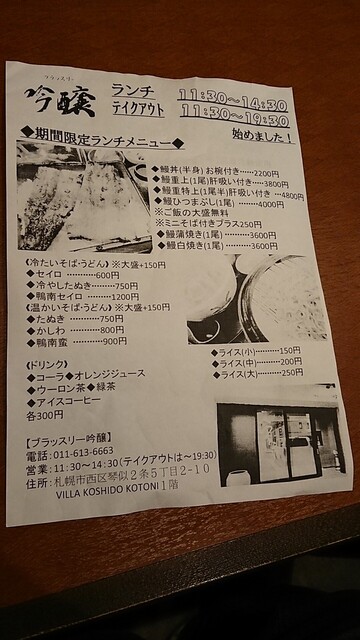 ブラッスリー
吟醸
ランチ 11:30~14:30
テイクアウト 11:30~19:30
◆期間限定ランチメニュー◆ 始めました!
◆鰻丼(半身)お椀付き……2200円
◆鰻重上(1尾)肝吸い付き…3800円
◆鰻重特上(1尾半)肝吸い付き …4800円
◆鰻ひつまぶし(1尾)…………4000円
※ご飯の大盛無料
※ミニそば付きプラス250円
◆鰻蒲焼き(1尾)…………3600円
◆鰻白焼き(1尾)…………3600円
《冷たいそば・うどん》 ※大盛+150円
◆セイロ …………600円
◆冷やしたぬき………750円
◆鴨南セイロ ………1200円
《温かいそば・うどん》 ※大盛+150円
◆たぬき …………750円
◆かしわ …………800円
◆鴨南蛮 …………900円
◆ライス(小)…………150円
◆ライス(中)…………200円
◆ライス(大)…………250円
《ドリンク》
◆コーラ◆オレンジジュース
◆ウーロン茶◆緑茶
◆アイスコーヒー
各300円
【ブラッスリー吟醸】
電話:011-613-6663
営業:11:30~14:30(テイクアウトは~19:30)
住所:札幌市西区琴似2条5丁目2-10
VILLA KOSHIDO KOTONI1階